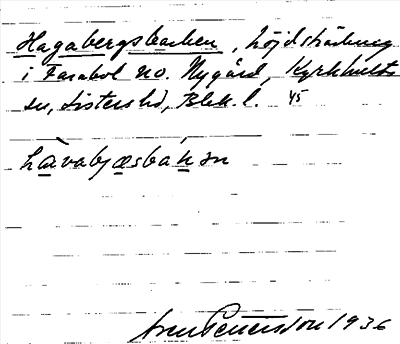 Hagabergsbacken, höjdsträckning
i Farabol no. Nygård, Kyrkhults
sn, Listers hd, Blek. l. 45
hàvabjæsbákən
Sven Benerson 1936